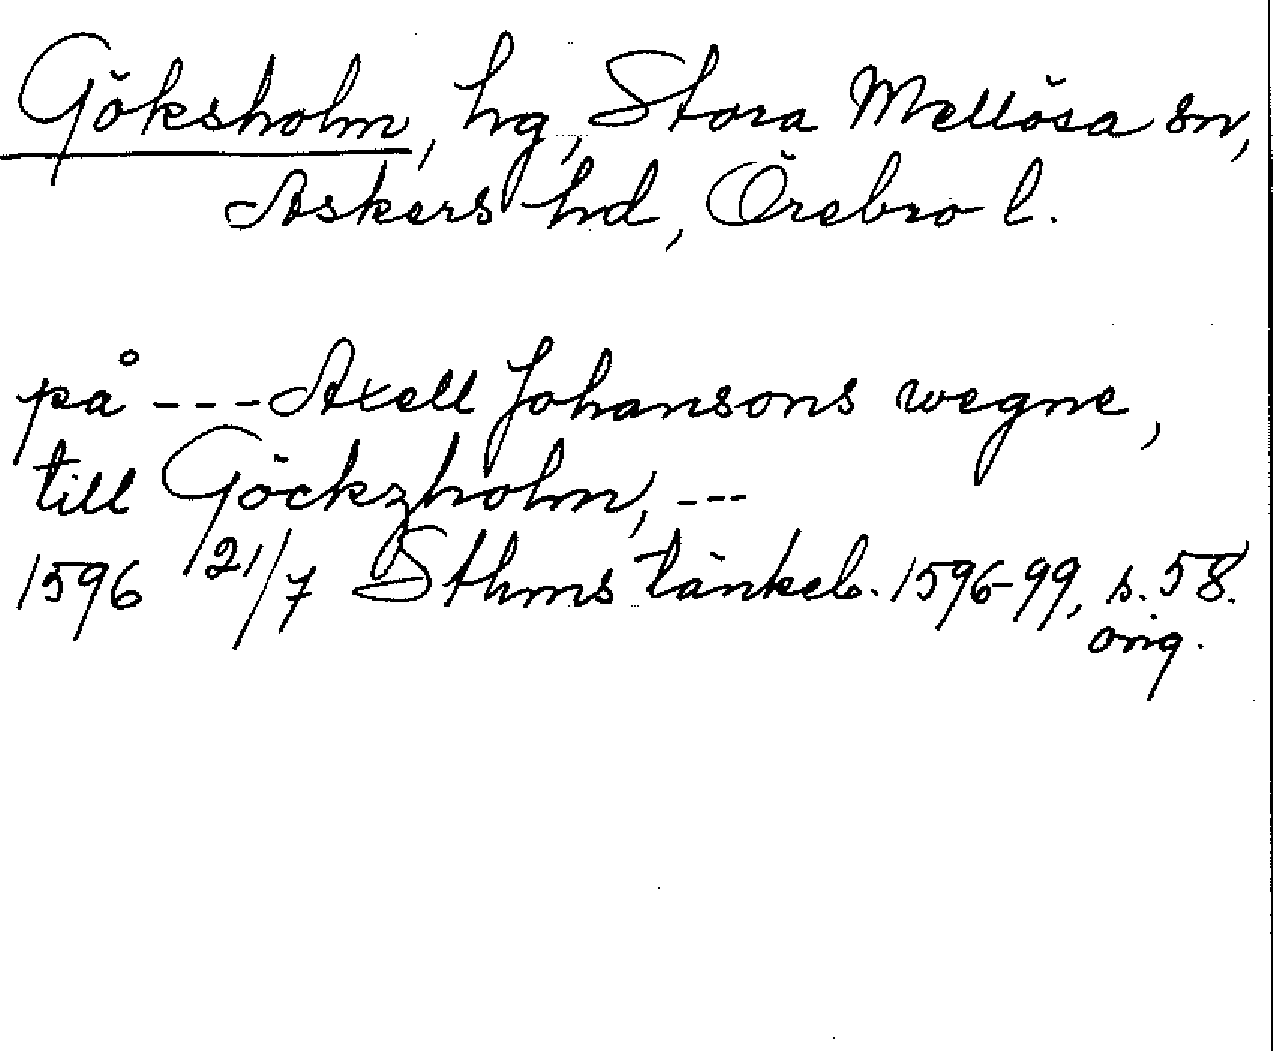 Göksholm, hg, Stora Mellösa sn,
Askers hd, Örebro l.
på --- Axell Johansons wegne,
till Göckzholm, ---
1596 21/7 Sthms tänkeb. 1596-99, s. 58.
orig.